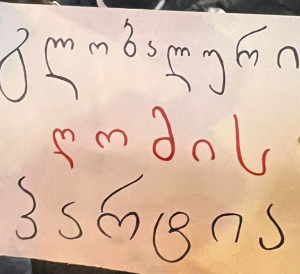 გლობალური
ღომის
პარტია